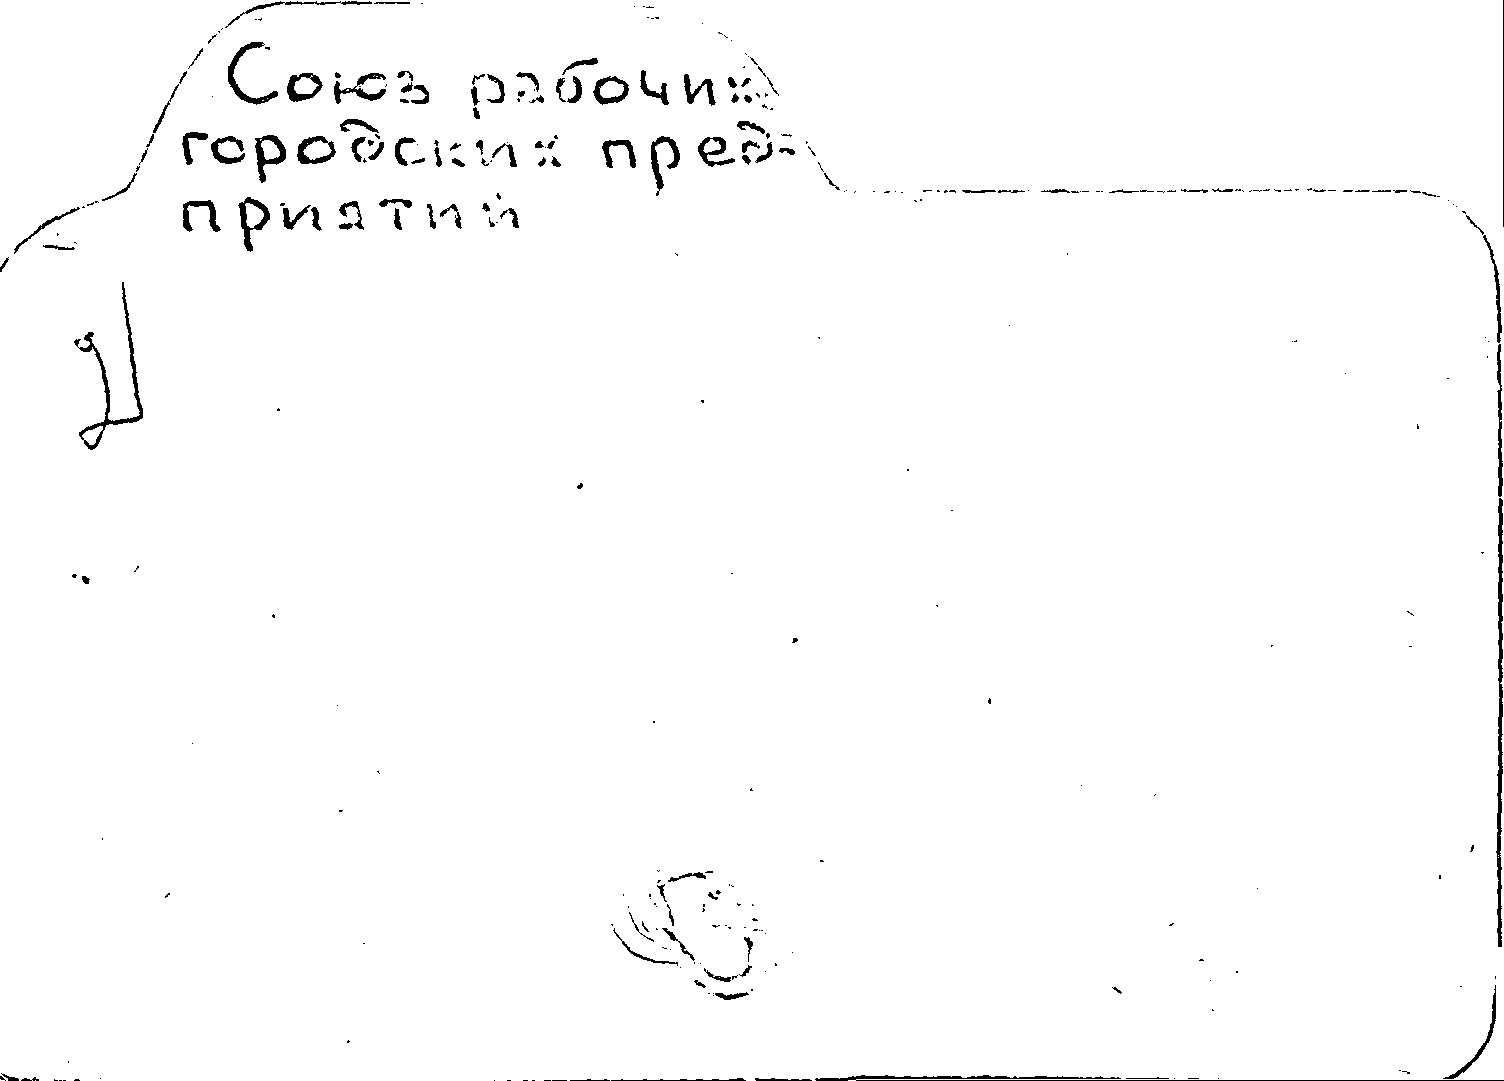 Союз рабочих
городских пред-
приятий